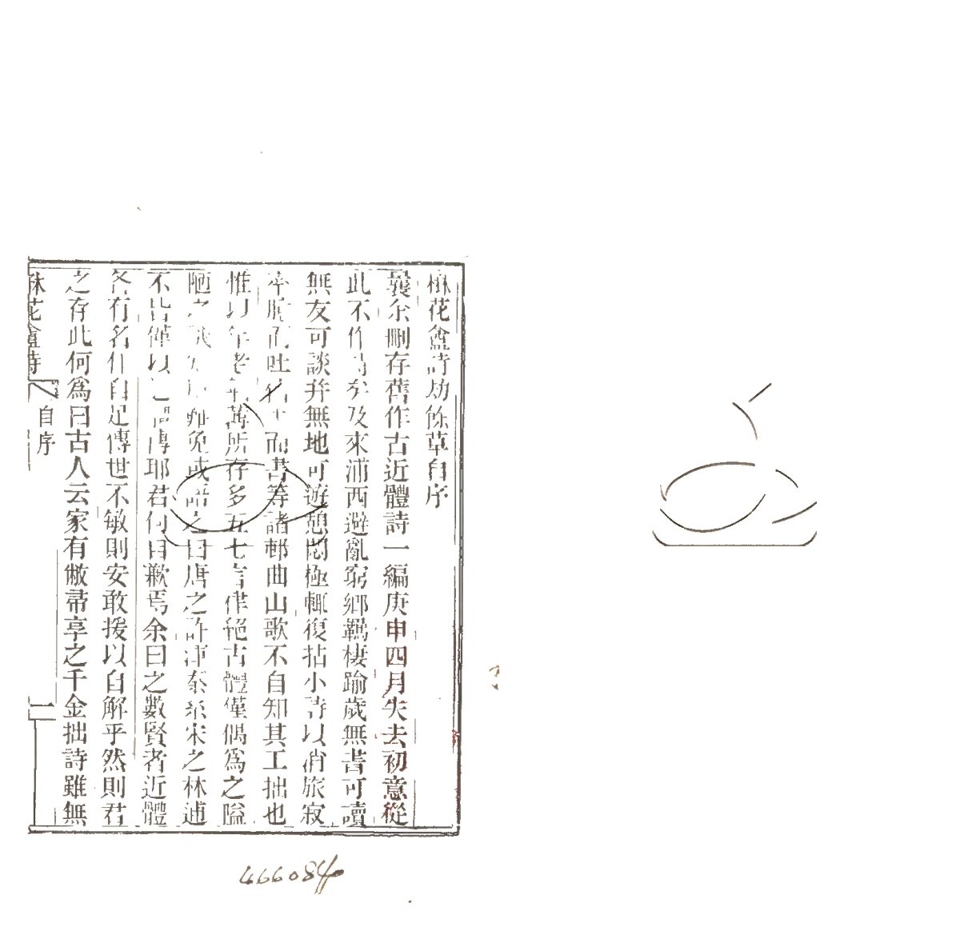 秣花盦詩劫餘草自序
曩余刪存舊作古近體詩一編庚申四月失去初意從
此不作詩矣及來浦西避亂窮鄉羈棲踰歲無書可讀
無友可談并無地可遊憩悶極輒復拈小詩以消旅寂
率臆而吐 而書等諸邨曲山歌不自知其工拙也
惟以年老 所存多五七言律絕古體僅偶為之隘
陋之 難免或語之曰唐之許渾秦系宋之林逋
不皆僅以 傳耶君何自歉焉余曰之數賢者近體
各有名作自足傳世不敏則安敢援以自解乎然則君
之存此何為曰古人云家有敝帚享之千金拙詩雖無
花盦詩
自序
一